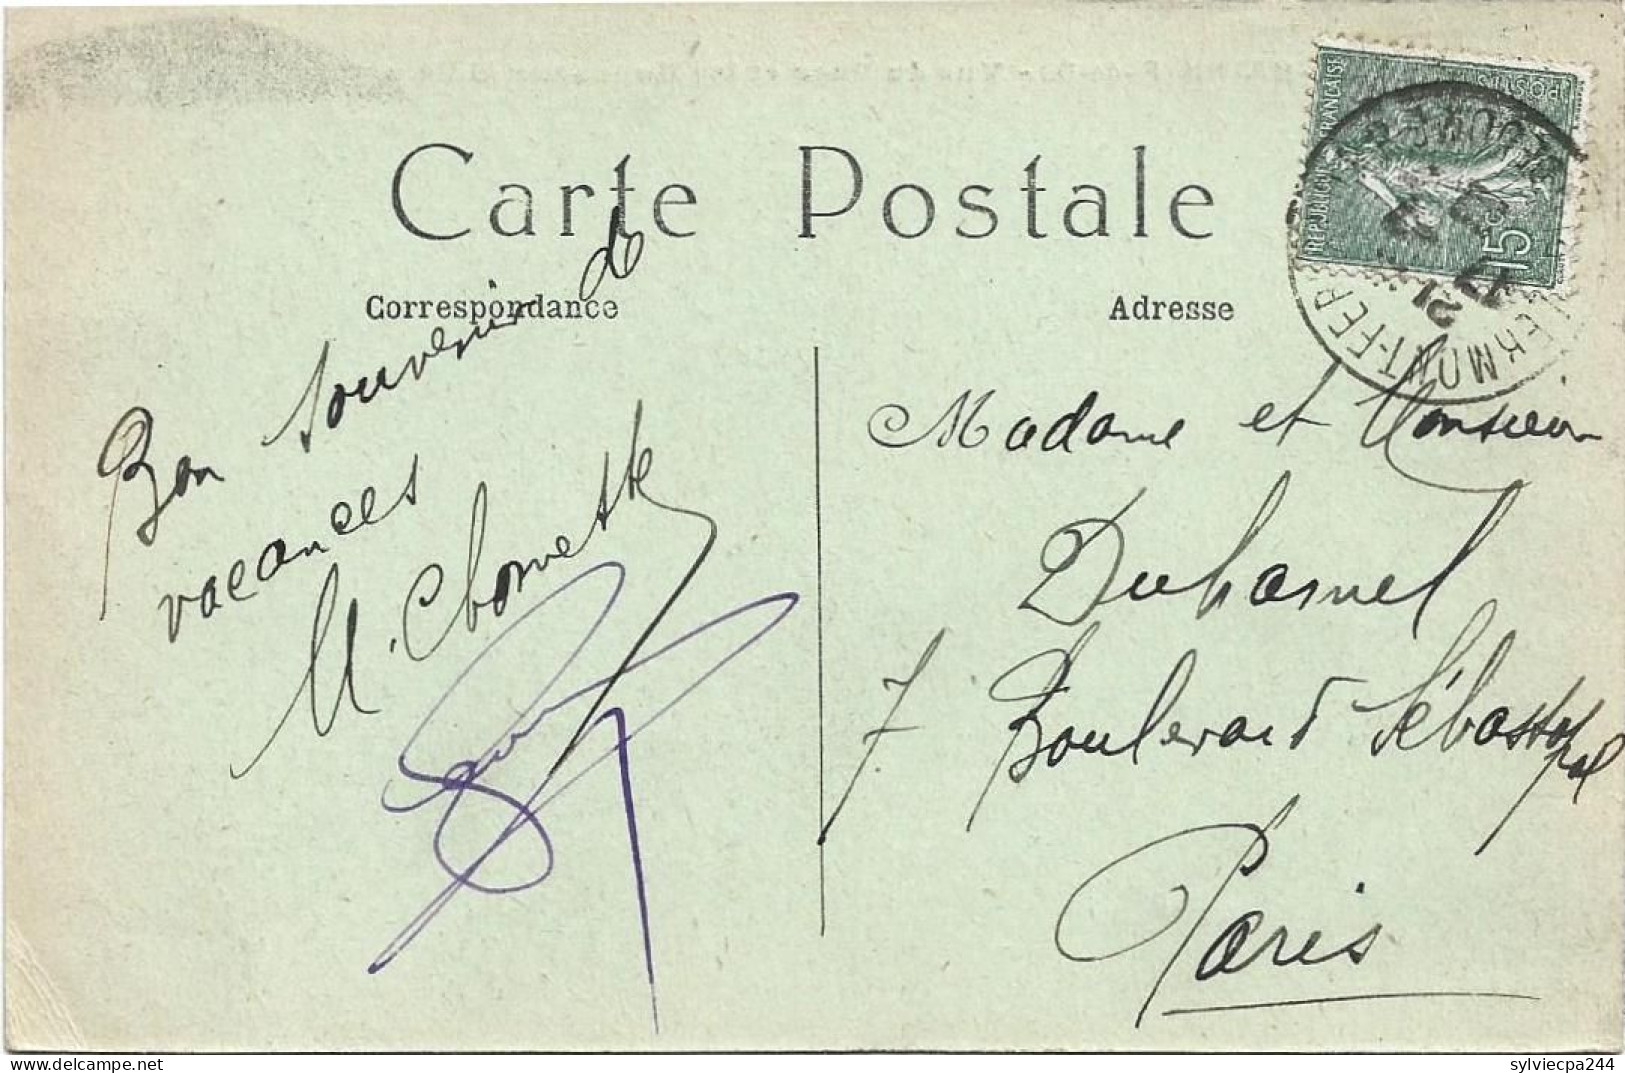 Carte Postale
Correspondance
Adresse
Bon souvenir de
vacances
M. Chomette
Madame et Monsieur
Duhamel
7 Boulevard Sébastopol
Paris
REPUBLIQUE FRANÇAISE
POSTES
15c
CLERMONT-FER
21
sylviecpa244